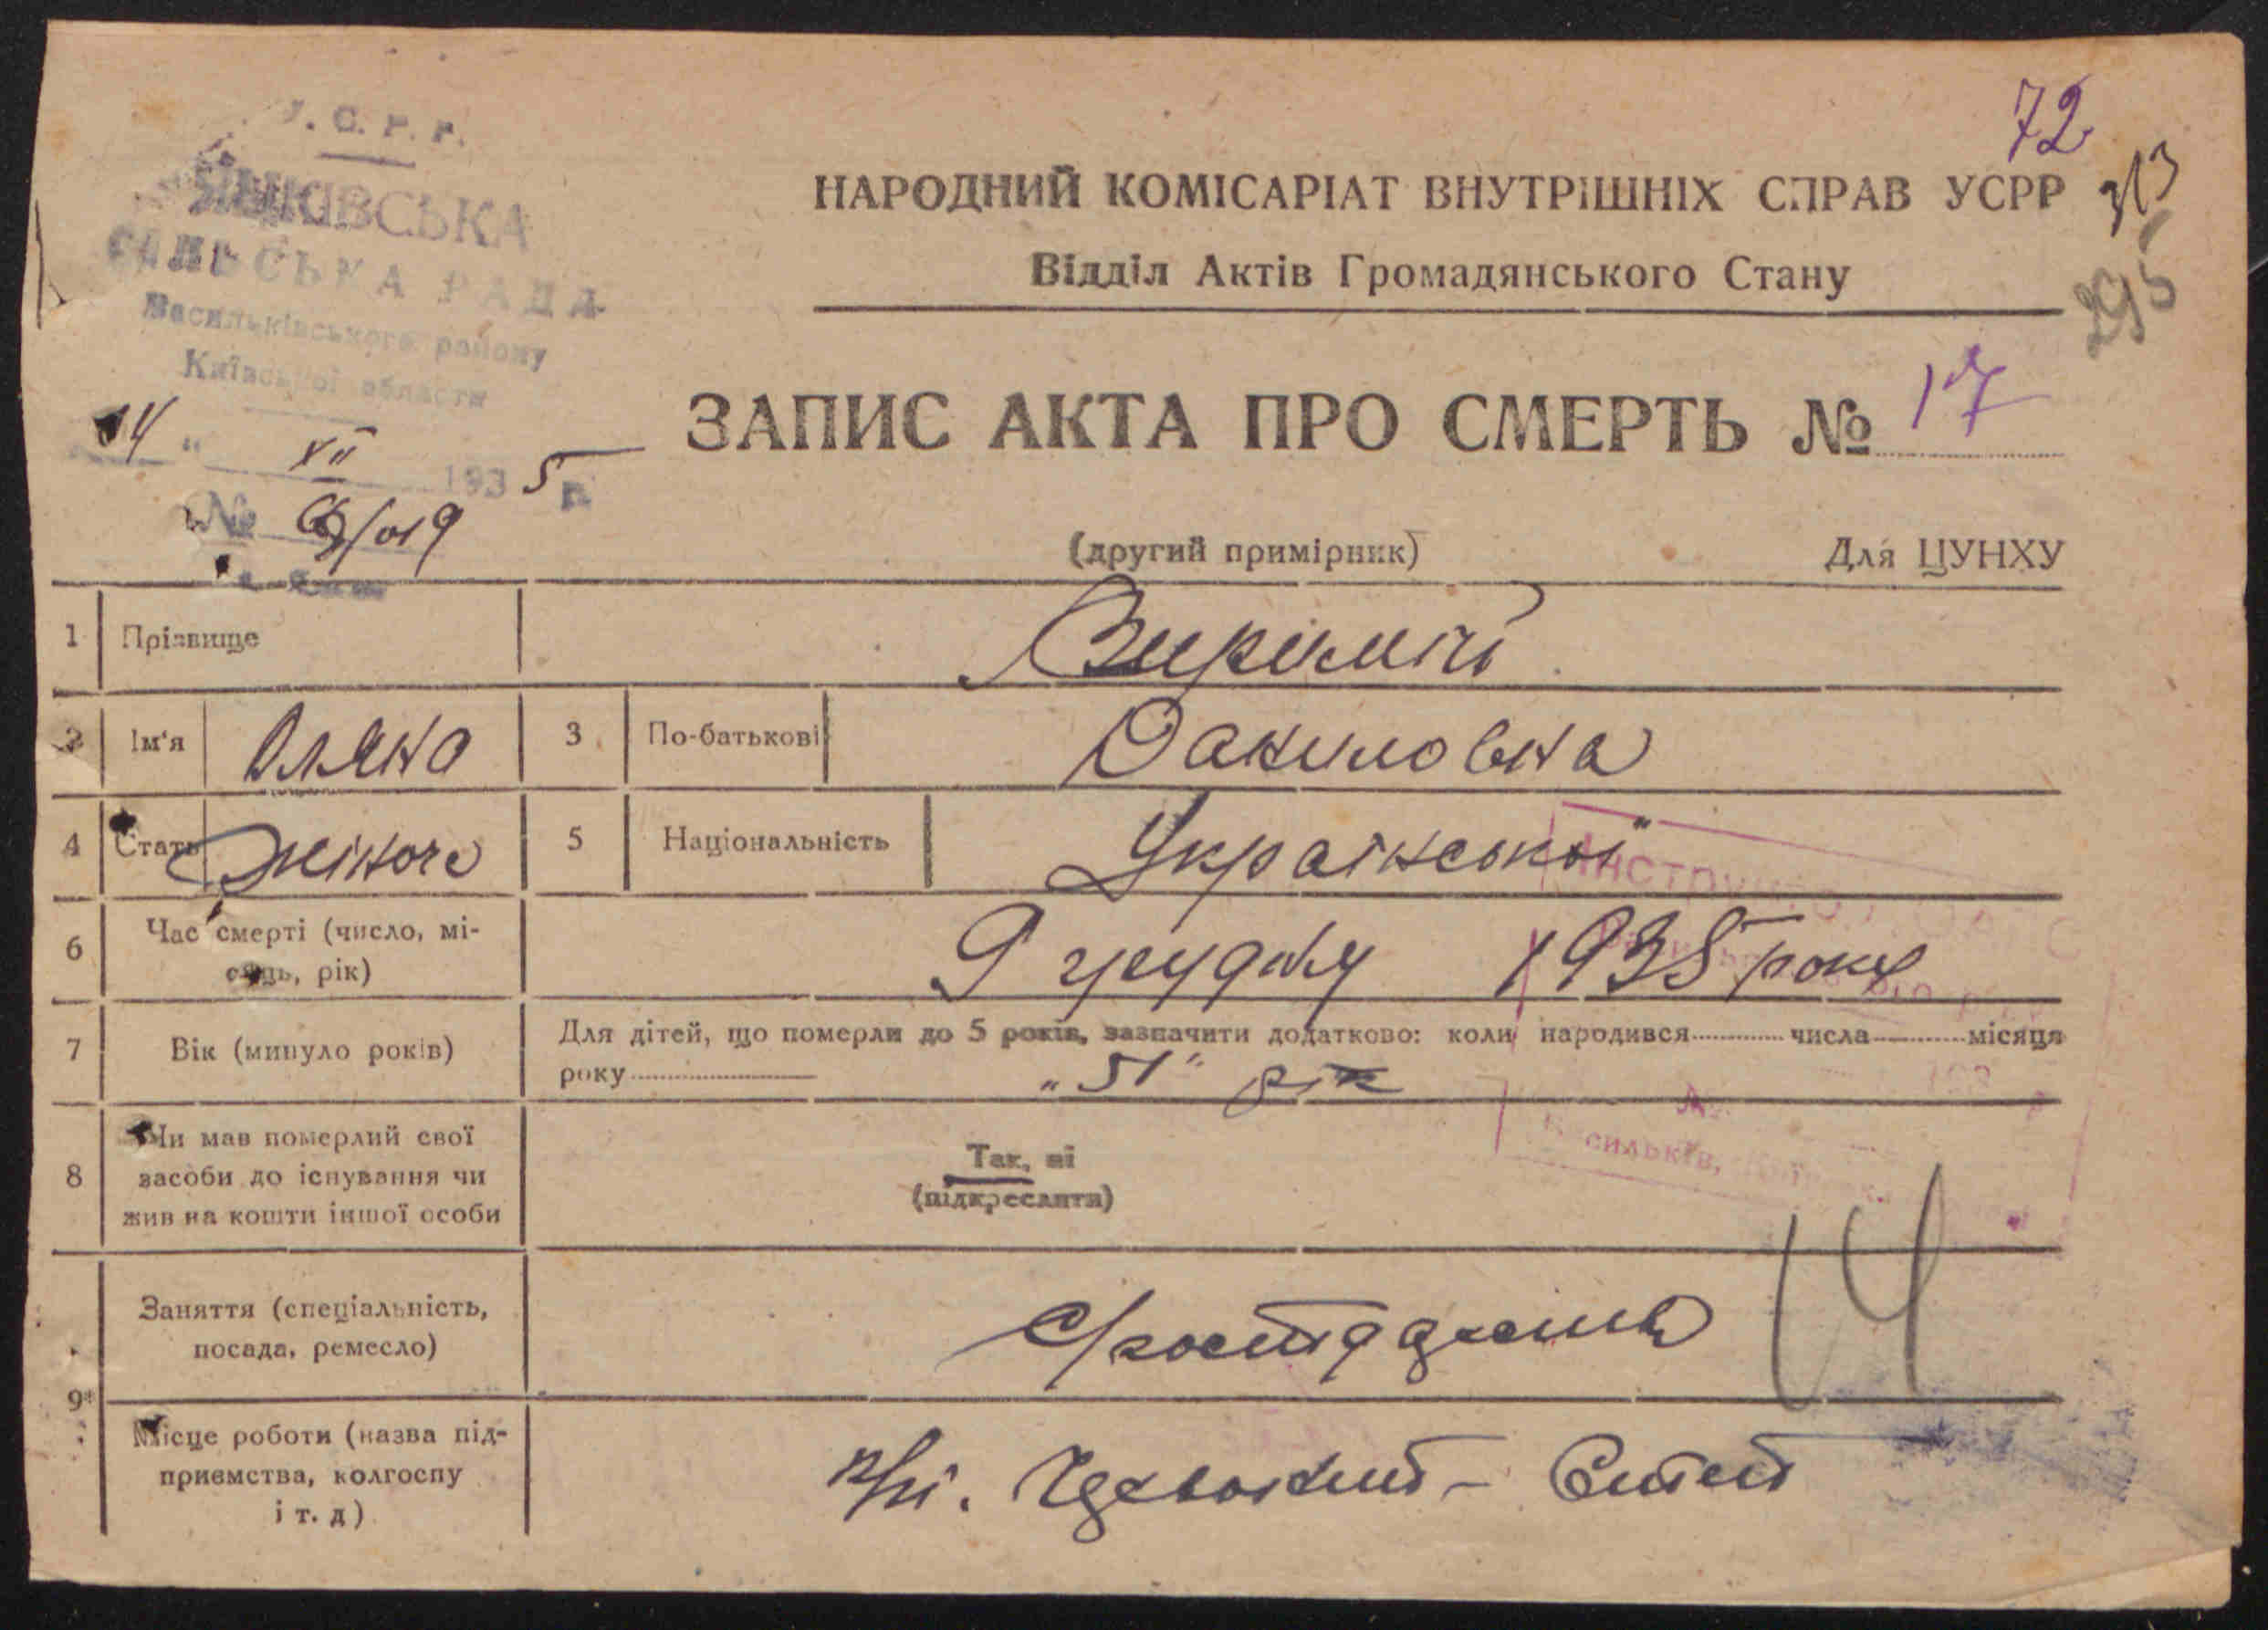 72
У. С. Р. Р.
СІЛЬСЬКА РАДА
Васильківського району
Київської области
14 " XII 1935 р.
№
НАРОДНИЙ КОМІСАРІАТ ВНУТРІШНІХ СПРАВ УСРР
313
Відділ Актів Громадянського Стану
295
ЗАПИС АКТА ПРО СМЕРТЬ № 17
(другий примірник) Для ЦУНХУ
1 Прізвище
2 Ім'я Оляна 3 По-батькові Даниловна
4 Стать жіноча 5 Національність Української
6 Час смерті (число, мі-
сяць, рік) 9 грудня 1935 року
7 Вік (минуло років) Для дітей, що померли до 5 років, зазначити додатково: коли народився числа місяця
року „51" рік
8 Чи мав померлий свої
засоби до існування чи
жив на кошти іншої особи
Так, ні
(підкреслити)
14
9 Заняття (спеціальність,
посада, ремесло)
Місце роботи (назва під-
приємства, колгоспу
і т. д)